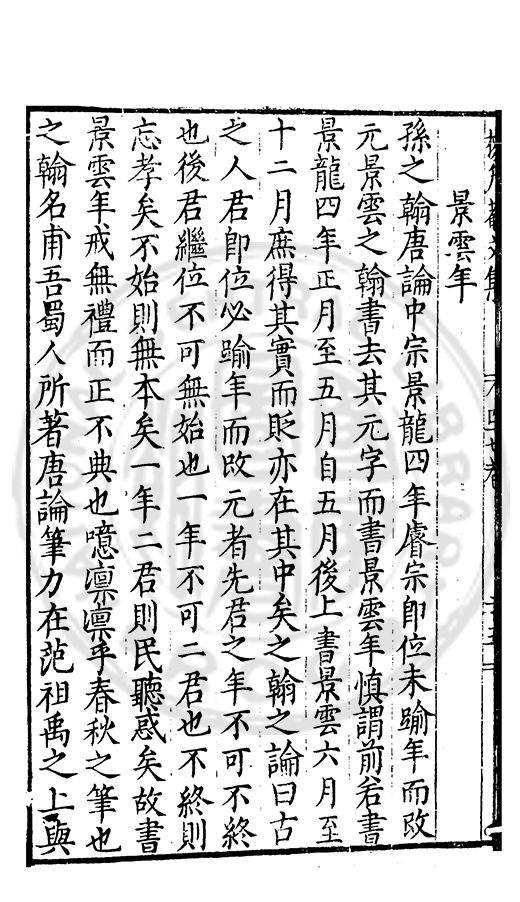 景雲年
孫之翰唐論中宗景龍四年睿宗即位未踰年而改
元景雲之翰書去其元字而書景雲年慎謂前若書
景龍四年正月至五月自五月後上書景雲六月至
十二月庶得其實而貶亦在其中矣之翰之論曰古
之人君即位必踰年而改元者先君之年不可不終
也後君繼位不可無始也一年不可二君也不終則
忘孝矣不始則無本矣一年二君則民聽惑矣故書
景雲年戒無禮而正不典也噫凛凛乎春秋之筆也
之翰名甫吾蜀人所著唐論筆力在范祖禹之上與